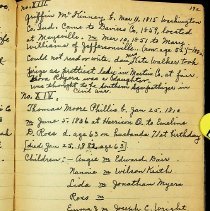 No. XIII
Griffin McKinney, b. Mar 11, 1815 Washington
Co. Ind. Came to Daviess Co. 1857, located
at Maysville. m Mar 19, 1857 to Mary
Williams of Jeffersonville.
Could not read or write. dau Kate walker took
prize as prettiest lady in Martin Co. at fair
was daughter
was thought to be Southern Sympathizer in
Civil war.
No. XIV.
Thomas Moore Phillis b. Jan 25. 1810
m June 5. 1836 at Harrison O. to Emeline
D. Ross d. age 63 on husbands 71st birthday
[died Jan 25. 1882 aged 63]
Children:- Angie m Edward Barr
Nannie m Wilson Keith
Lida m Jonathan Myers
Ross m
Emma J m Joseph C. Wright